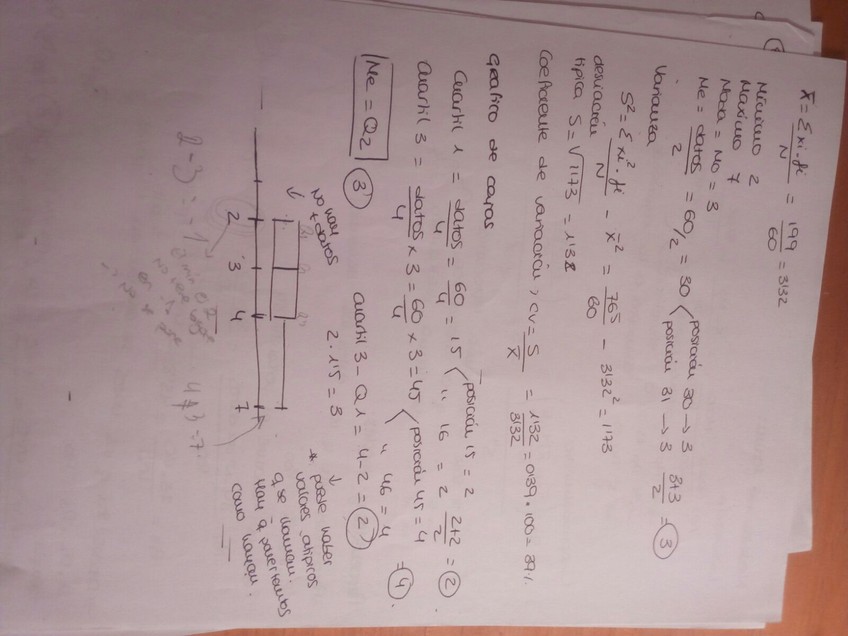 x̄ = Σxi·fi / N = 199/60 = 3'32
Mínimo 2
Maximo 7
Moda = Mo = 3
Me = datos/2 = 60/2 = 30 < posición 30 → 3
posición 31 → 3 3+3/2 = 3
Varianza
S² = Σxi²·fi / N - x̄² = 765/60 - 3'32² = 1'73
desviación
típica S = √1'73 = 1'38
Coeficiente de variación, CV = S/x̄ = 1'32/3'32 = 0'39 · 100 = 39%
Grafico de cajas
Cuartil 1 = datos/4 = 60/4 = 15 < posición 15 = 2
" 16 = 2 2+2/2 = 2.
Cuartil 3 = datos/4 × 3 = 60/4 × 3 = 45 < posición 45 = 4
" 46 = 4 = 4.
Me = Q2 3 Cuartil 3 - Q1 = 4 - 2 = 2
2 · 1'5 = 3
No hay
+ datos
* puede haber
valores atípicos
q se llaman.
como
2 3 4 7
2 - 3 = -1
4 + 3 = 7